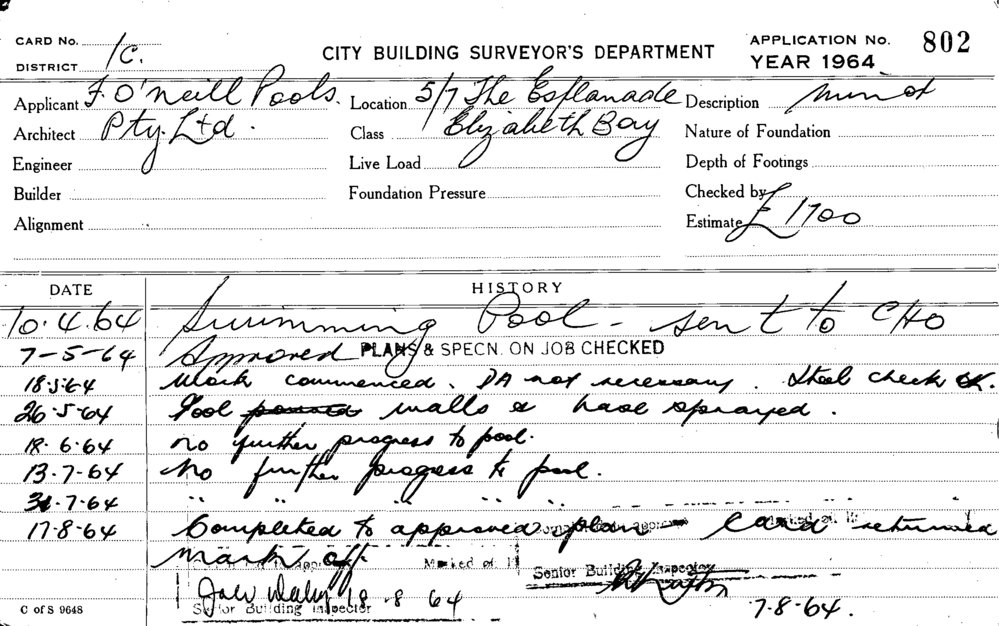 CARD No.
DISTRICT 1C.
CITY BUILDING SURVEYOR'S DEPARTMENT
APPLICATION No. 802
YEAR 1964
Applicant F. O'Neill Pools. Location 5/7 The Esplanade Description Minor
Architect Pty. Ltd. Class Elizabeth Bay Nature of Foundation
Engineer Live Load Depth of Footings
Builder Foundation Pressure Checked by
Alignment Estimate £1700
DATE HISTORY
10.4.64 Swimming Pool - sent to CHO
7-5-64 Approved PLANS & SPECN. ON JOB CHECKED
18.5.64 Work commenced. DA not necessary. Steel check OK.
26-5-64 Pool poured walls & base sprayed.
18.6.64 no further progress to pool.
13.7.64 No further progress to pool.
31.7.64 " " " " "
17.8.64 Completed to approved plan card returned
mark off.
Marked off
Senior Building Inspector
18-8-64
Senior Building Inspector
7-8-64.
C of S 9648